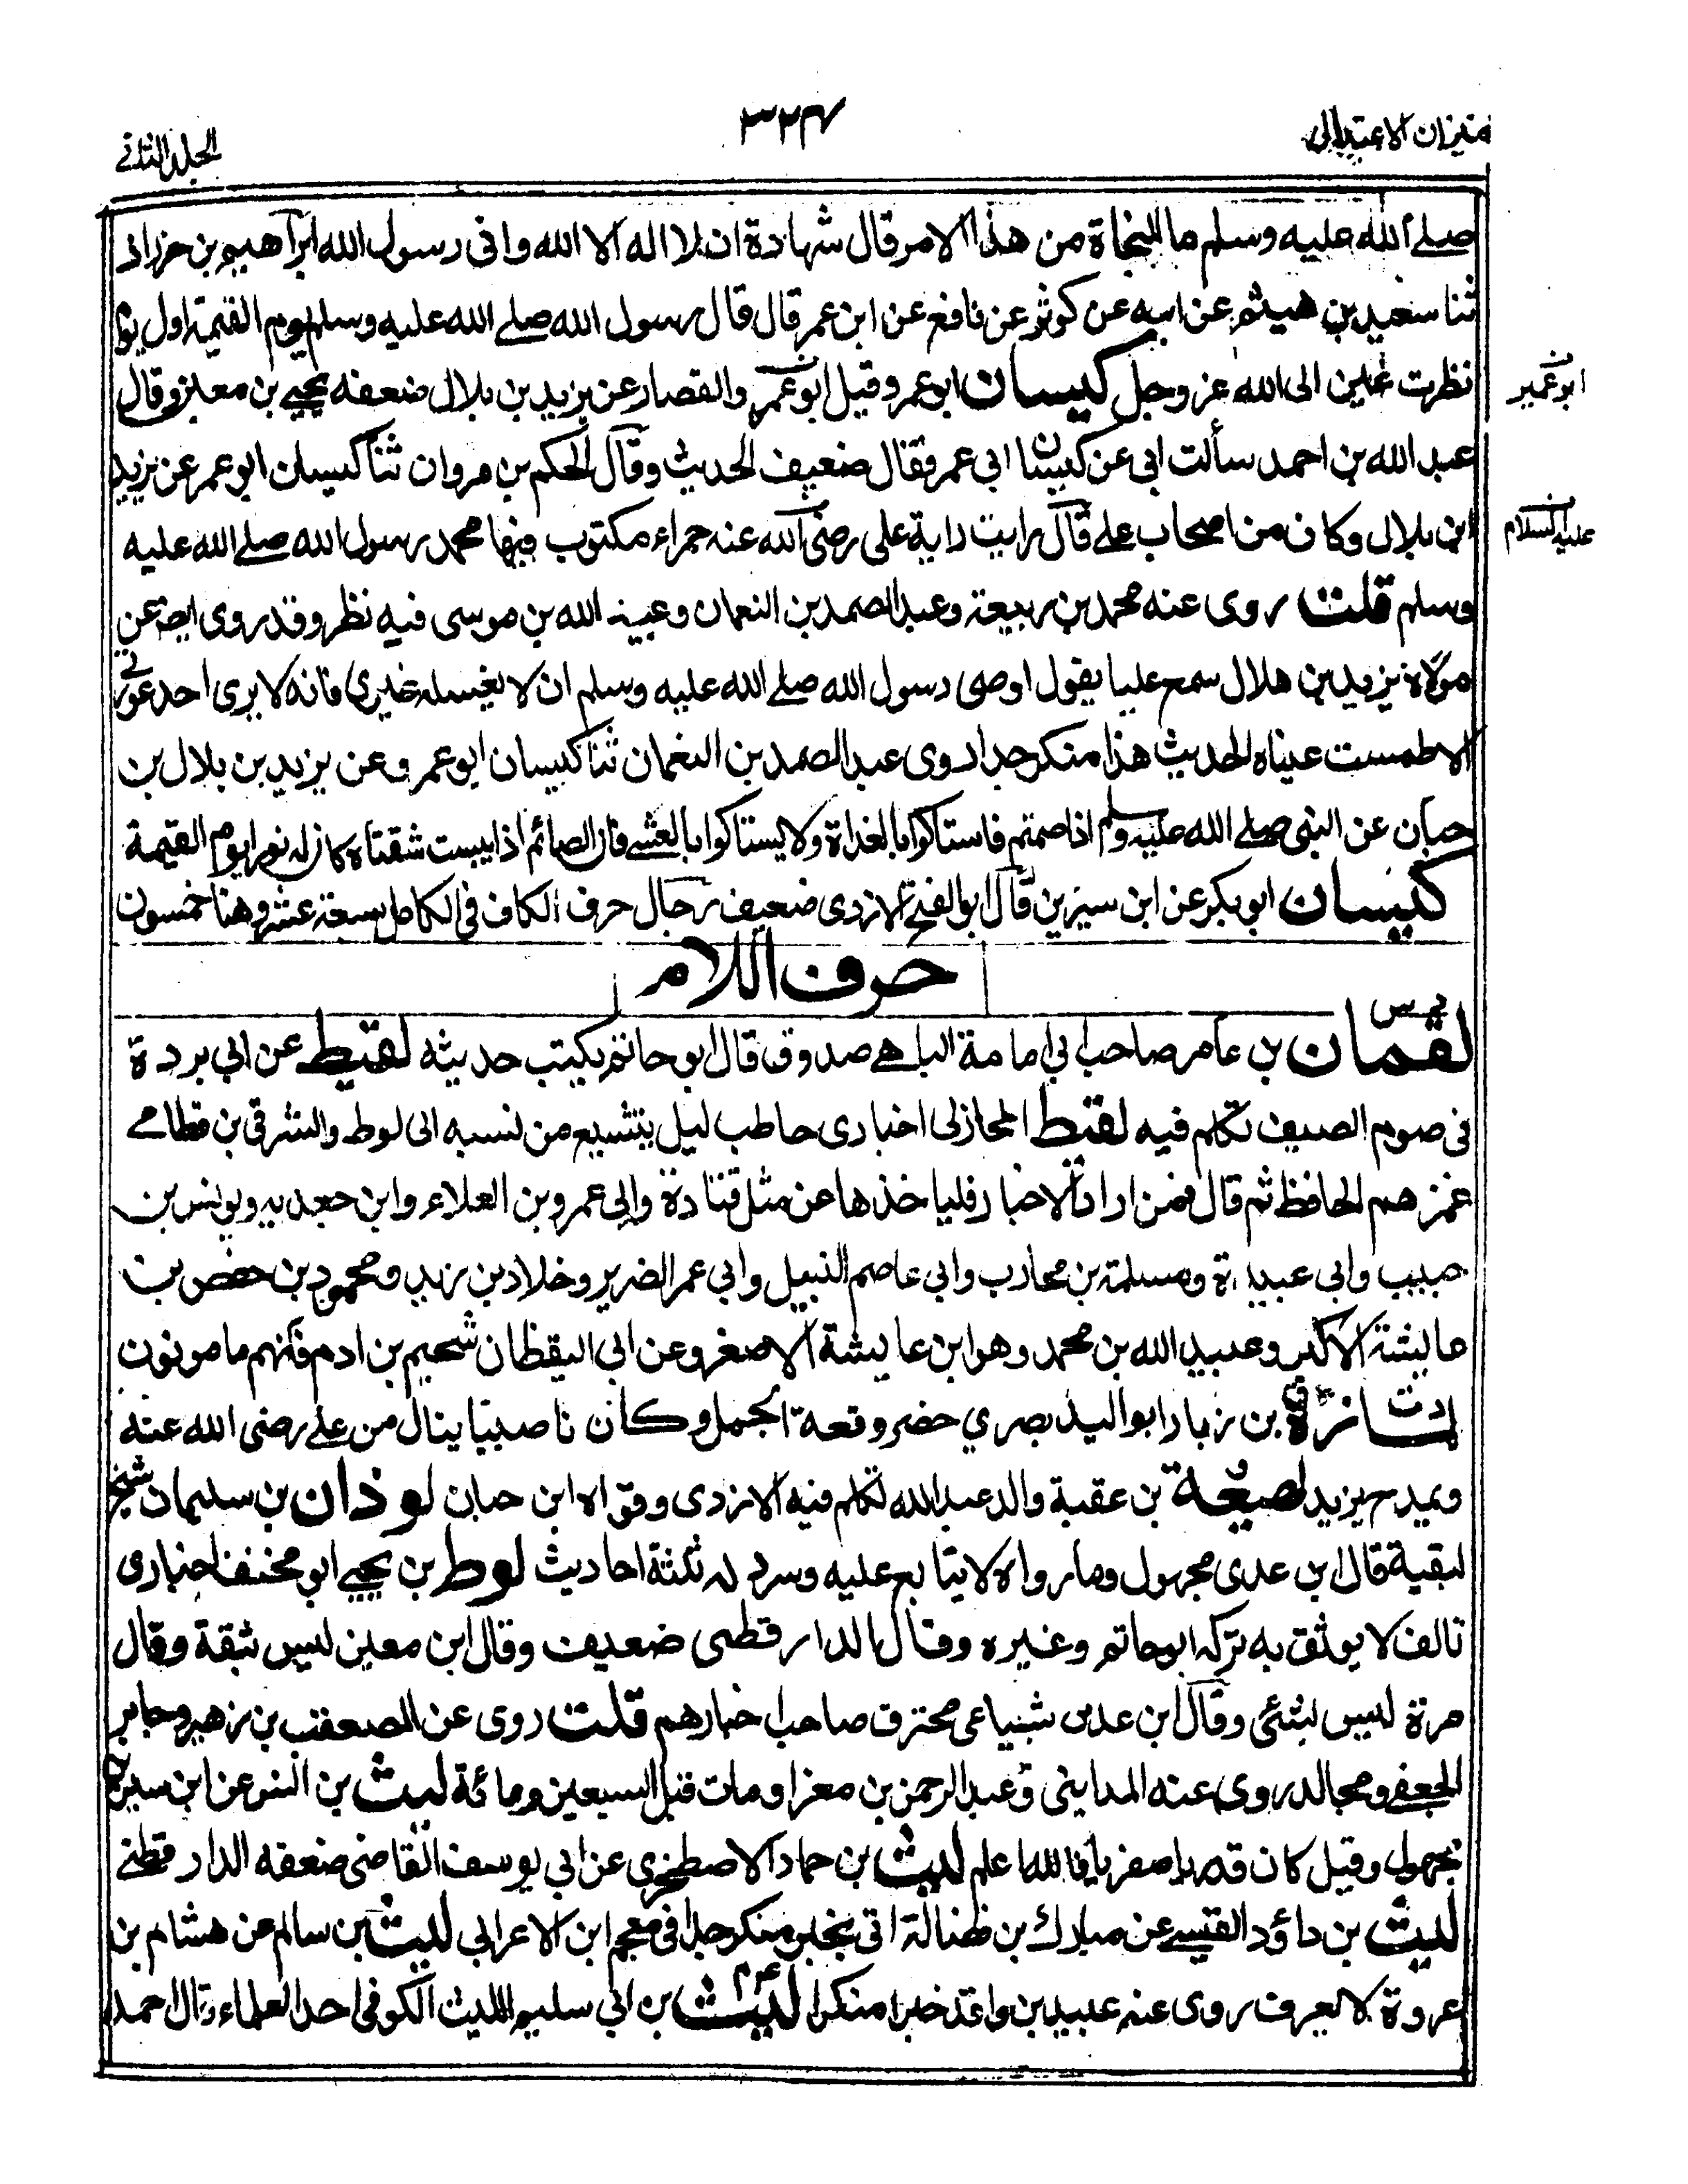 ميزان الاعتدال
٣٢٤
الجلد الثانى
صلے الله عليه وسلم ما النجاة من هذا الامر قال شهادة ان لا اله الا الله وانى رسول الله ابراهيم بن حزانى
ثنا سعيد بن هيثم عن ابيه عن كوثر عن نافع عن ابن عمر قال قال رسول الله صلے الله عليه وسلم يوم القيمة اول يوم
نظرت عين الى الله عز وجل كيسان ابو عمرو وقيل ابو عمر والقصار عن يزيد بن بلال ضعفه يحيے بن معين وقال
ابو عمير
عبد الله بن احمد سألت ابى عن كيسان ابى عمر فقال ضعيف الحديث وقال الحكم بن مروان ثنا كيسان ابو عمر عن يزيد
ابن بلال وكان من اصحاب علے قال رايت راية على رضى الله عنه حمراء مكتوب فيها محمد رسول الله صلے الله عليه
عليه السلام
وسلم قلت روى عنه محمد بن ربيعة وعبد الصمد بن النعمان وعبيد الله بن موسى فيه نظر وقد روى ايضا عن
مولاه يزيد بن هلال سمع عليا يقول اوصى رسول الله صلے الله عليه وسلم ان لا يغسله غيري فانه لا يرى احد عورتى
الا طمست عيناه الحديث هذا منكر جدا روى عبد الصمد بن النعمان ثنا كيسان ابو عمرو عن يزيد بن بلال بن
حبان عن النبى صلے الله عليه وسلم اذا صمتم فاستاكوا بالغداة ولا يستاكوا بالعشے فان الصائم اذا يبست شفتاه كان له نورا يوم القيمة
كيسان ابو بكر عن ابن سيرين قال ابو الفتح الازدى ضعيف رجال حرف الكاف فى الكامل بسعة عشر وهنا خمسون
حرف اللام
لقمان بن عامر صاحب ابي امامة الباهے صدوق قال ابو حاتم يكتب حديثه لقيط عن ابي بردة
فى صوم الصيف تكلم فيه لقيط المحازلى اخبارى حاطب ليل يتشيع من نسبه الى لوط والشرقى بن قطامے
غمزهم الحافظ ثم قال فمن اراد الاخبار فليا خذها عن مثل قتادة وابى عمرو بن العلاء وابن جعدبه ويونس بن
حبيب وابى عبيدة ومسلمة بن محارب وابى عاصم النبيل وابى عمر الضرير وخلاد بن يزيد ومحمود بن حفص بن
عايشة الاكبر وعبيد الله بن محمد وهو ابن عايشة الاصغر وعن ابى اليقظان شحيم بن ادم فانهم مامونون
لمازة بن زبار ابو الوليد بصري حضر وقعة الجمل وكان ناصبيا ينال من علے رضى الله عنه
ويمدح يزيد لهيعة بن عقبة والد عبد الله تكلم فيه الازدى وقواه ابن حبان لوذان بن سليمان شيخ
لبقية قال ابن عدى مجهول وما رواه لا يتابع عليه وسرد له ثلثة احاديث لوط بن يحيے ابو مخنف اخبارى
تالف لا يوثق به تركه ابو حاتم وغيره وقال الدارقطنى ضعيف وقال ابن معين ليس بثقة وقال
مرة ليس بشئى وقال ابن عدى شيعى محترق صاحب اخبارهم قلت روى عن الصعقب بن زهير وجابر
الجعفے ومجالد روى عنه المداينى وعبد الرحمن بن مغرا ومات قبل السبعين ومائة ليث بن انس عن ابن سيرين
مجهول وقيل كان قدريا صفريا فالله اعلم ليث بن حماد الاصطخرى عن ابي يوسف القاضى ضعفه الدارقطنے
ليث بن داؤد القيسے عن مبارك بن فضالة اتى بخبر منكر جدا فى معجم ابن الاعرابي ليث بن سالم عن هشام بن
عروة لا يعرف روى عنه عبيد بن واقد خبرا منكرا ليث بن ابي سليم الليث الكوفى احد العلماء قال احمد